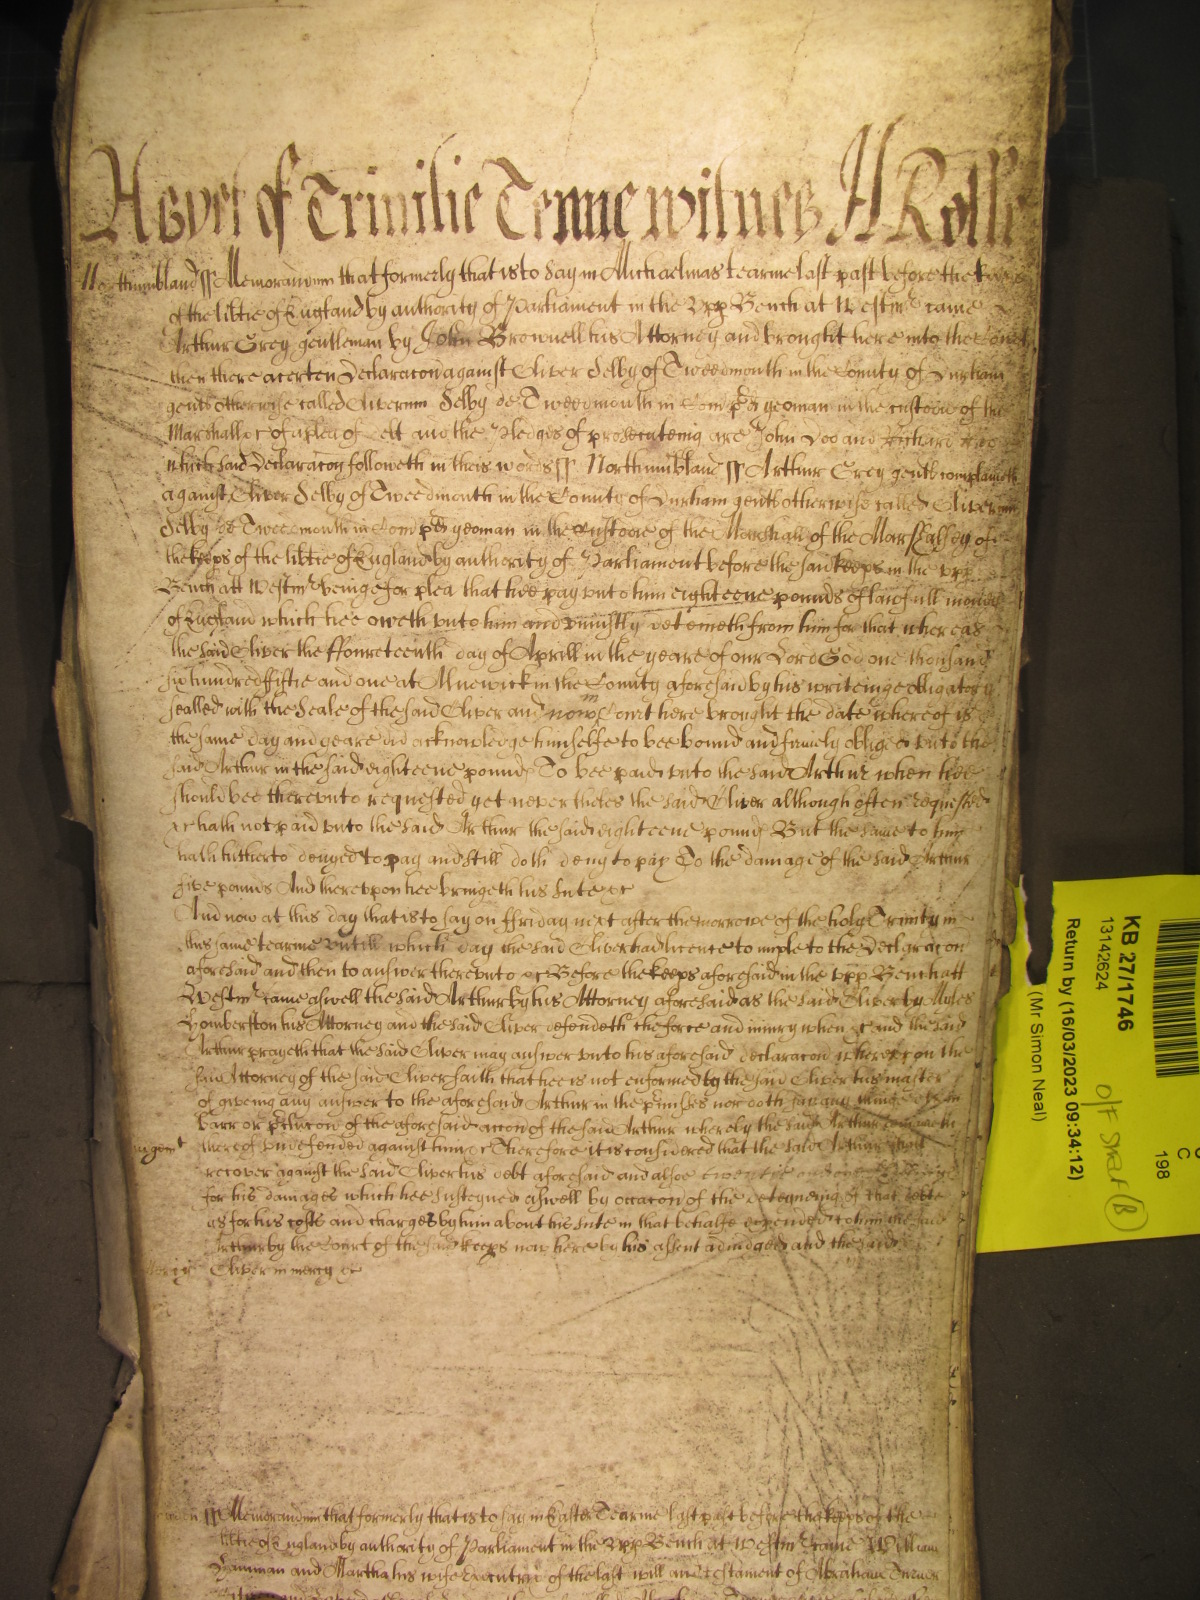 As yet of Trinitie Terme witnes H Rolle
Northumbland ss Memorandum that formerly that is to say in Michaelmas tearme last past before the keeps
of the libtie of England by authority of Parliament in the Vpp Bench at Westmr came
Arthur Grey gentleman by John Brownell his Attorney and brought here into the Court
then there a certen Declaracon against Oliver Selby of Tweedmouth in the County of Durham
gent otherwise called Oliverum Selby de Tweedmouth in Com pd yeoman in the custodie of the
Marshall &c of a plea of debt and the Pledges of prosecuteing are John Doo and Richard Roo
which said Declaracon followeth in theis words ss Northumbland ss Arthur Grey gent complaineth
against Oliver Selby of Tweedmouth in the County of Durham gent otherwise called Oliverum
Selby de Tweedmouth in Com pd yeoman in the Custodie of the Marshall of the Marshalsey of
the keeps of the libtie of England by authority of Parliament before the said keeps in the vpp
Bench att Westmr beinge for plea that hee pay vnto him eighteene pounds of lawfull money
of England which hee oweth vnto him and vniustly deteineth from him for that whereas
the said Oliver the ffourteenth day of Aprill in the yeare of our Lord God one thousand
six hundred fiftie and one at Alnewick in the County aforesaid by his writeinge obligatory
sealled with the Seale of the said Oliver and now in Court here brought the date whereof is
the same day and yeare did acknowledge himselfe to bee bound and firmely obliged vnto the
said Arthur in the said eighteene pounds To bee paid vnto the said Arthur when hee
should bee therevnto requested yet nevertheles the said Oliver although often requested
&c hath not paid vnto the said Arthur the said eighteene pounds But the same to him
hath hitherto denyed to pay and still doth deny to pay To the damage of the said Arthur
five pounds And therevpon hee bringeth his Suite &c
And now at this day that is to say on ffriday next after the morrowe of the holy Trinity in
this same tearme vntill which day the said Oliver had licence to imple to the Declaracon
aforesaid and then to answer therevnto &c Before the keeps aforesaid in the vpp Bench att
Westmr came aswell the said Arthur by his Attorney aforesaid as the said Oliver by Myles
Homberston his Attorney and the said Oliver defendeth the force and iniury when &c and the said
Arthur prayeth that the said Oliver may answer vnto his aforesaid declaracon wherevpon the
said Attorney of the said Oliver saith that hee is not enformed by the said Oliver his master
of giveing any answer to the aforesaid Arthur in the pmisses nor doth say any thinge els in
barr or pclucon of the aforesaid accon of the said Arthur whereby the said Arthur remaineth
thereof vndefended against him &c Therefore it is considered that the said Arthur
recover against the said Oliver his debt aforesaid and alsoe
for his damages which hee susteyned aswell by occacon of the deteyneing of that debte
as for his costs and charges by him about his Suite in that behalfe expended to him the said
Arthur by the Court of the said keeps now here by his assent adiudged and the said
Oliver in mercy &c
ss Memorandum that formerly that is to say in Easter Tearme last past before the keeps of the
libtie of England by authority of Parliament in the vpp Bench at Westmr came William
and Martha his wife executrix of the last will and testament of Abraham Turner
KB 27/1746
13142624
Return by (16/03/2023 09:34:12)
(Mr Simon Neal)
C
198